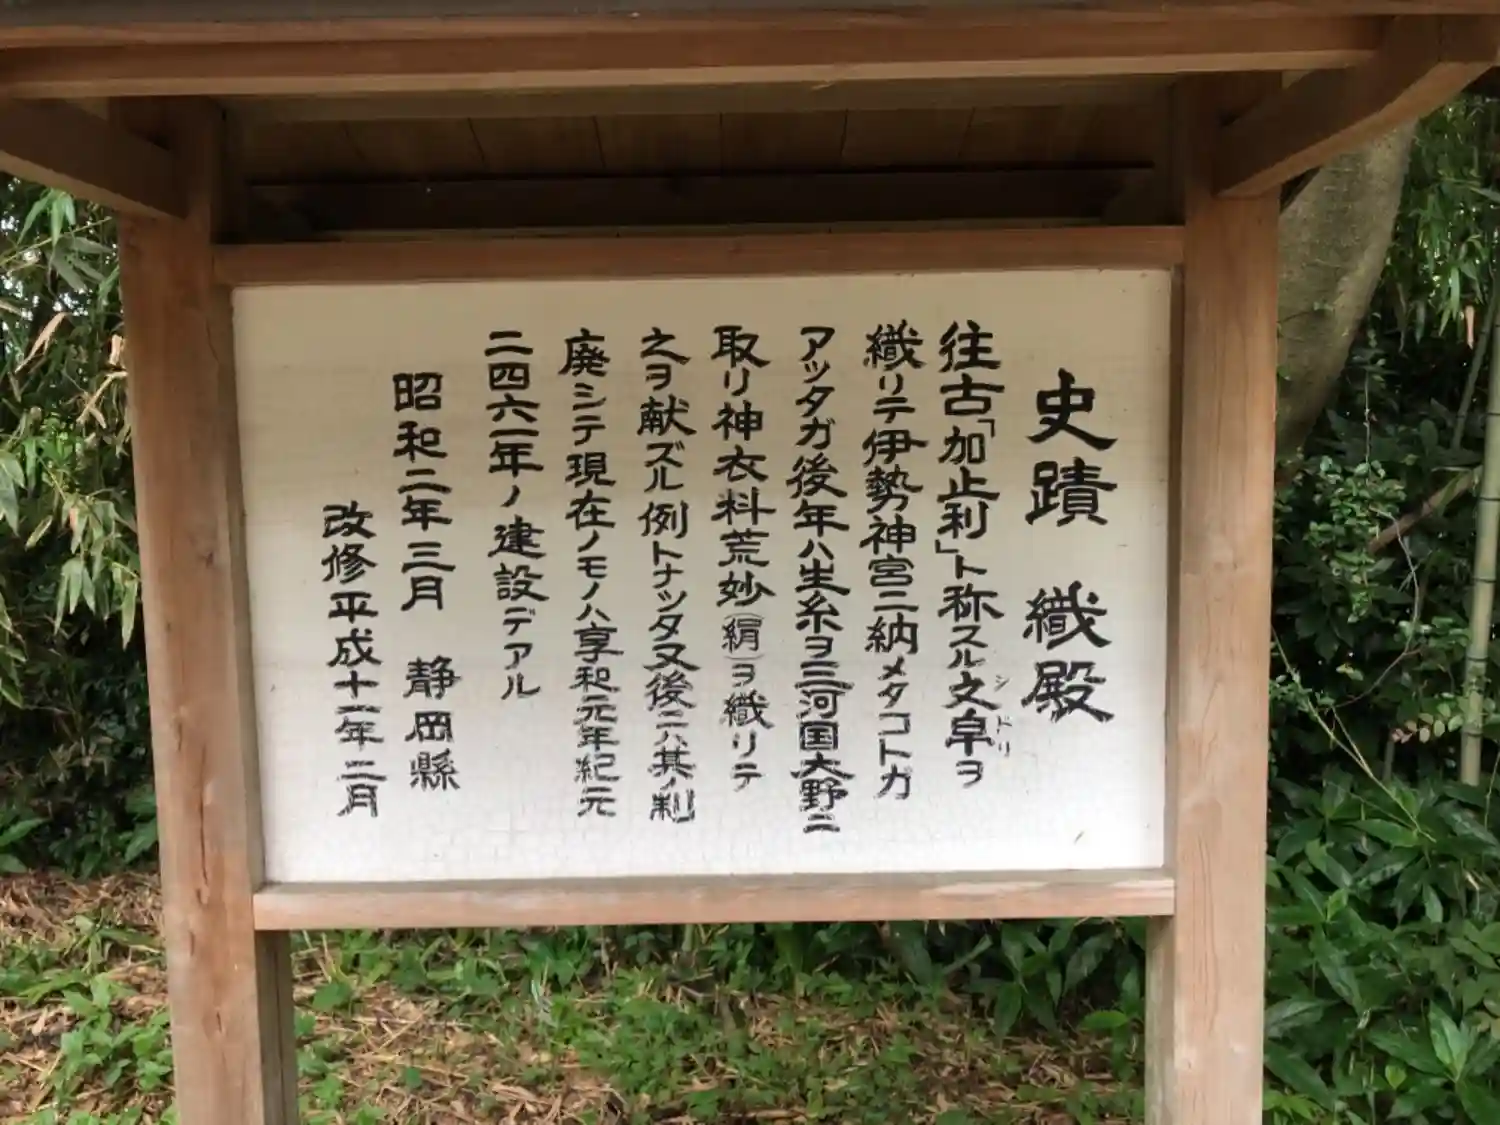 史蹟 織殿
往古「加止利」ト称スル文皁ヲ
シドリ
織リテ伊勢神宮ニ納メタコトガ
アッタガ後年ハ生糸ヲ三河国大野ニ
取リ神衣料荒妙(絹)ヲ織リテ
之ヲ献ズル例トナッタ又後ニハ其ノ制
廃シテ現在ノモノハ享和元年紀元
二四六一年ノ建設デアル
昭和二年三月 静岡縣
改修平成十一年二月